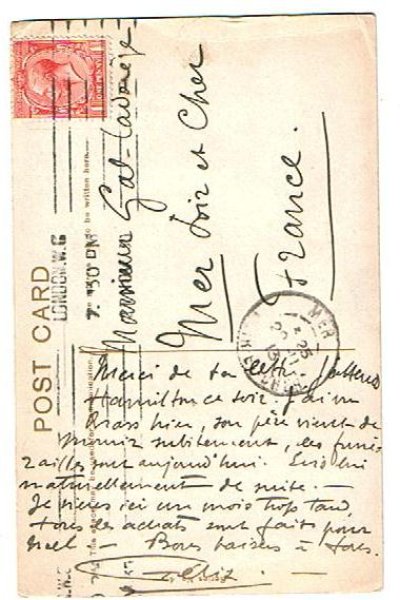 POST CARD
LONDON.W.C
7.30 PM
be written here.
Monsieur Gal-Ladevèze
Mer Loir et Cher
France.
MER
LOIR-ET-CHER
Merci de ta lettre J'attends
Hamilton ce soir. J'ai vu
hier, son père vient de
mourir subitement, les funé-
railles sont aujourd'hui. Ecris lui
naturellement de suite.-
Je viens ici un mois trop tard,
tous les achats sont faits pour
Noel - Bons baisers à tous.